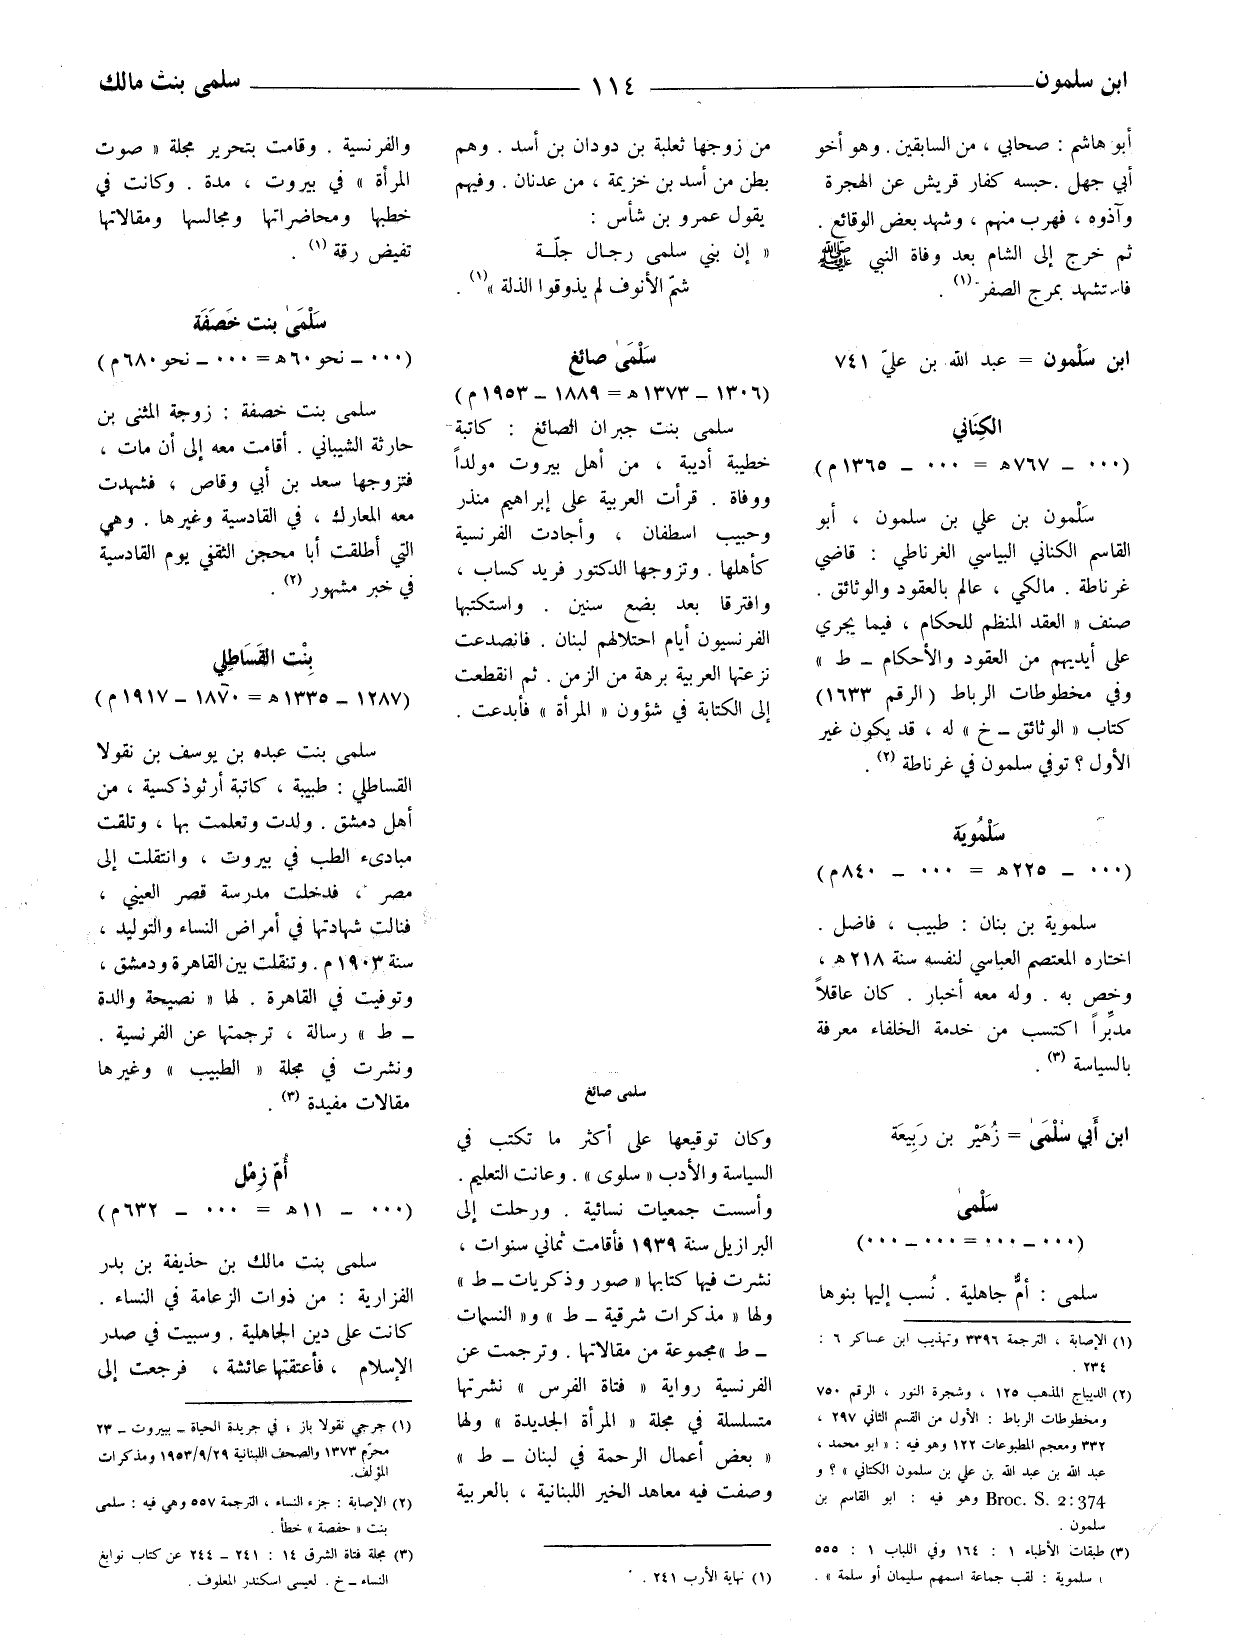 ابن سلمون
١١٤
سلمى بنت مالك
أبو هاشم : صحابي ، من السابقين . وهو أخو
أبي جهل . حبسه كفار قريش عن الهجرة
وآذوه ، فهرب منهم ، وشهد بعض الوقائع .
ثم خرج إلى الشام بعد وفاة النبي ﷺ
فاستشهد بمرج الصفر (١) .
ابن سَلْمون = عبد الله بن عليّ ٧٤١
الكِنَاني
(٠٠٠ ــ ٧٦٧ هـ = ٠٠٠ ــ ١٣٦٥ م)
سَلْمون بن علي بن سلمون ، أبو
القاسم الكناني البياسي الغرناطي : قاضي
غرناطة . مالكي ، عالم بالعقود والوثائق .
صنف « العقد المنظم للحكام ، فيما يجري
على أيديهم من العقود والأحكام ــ ط »
وفي مخطوطات الرباط (الرقم ١٦٣٣)
كتاب « الوثائق ــ خ » له ، قد يكون غير
الأول ؟ توفي سلمون في غرناطة (٢) .
سَلْمُويَة
(٠٠٠ ــ ٢٢٥ هـ = ٠٠٠ ــ ٨٤٠ م)
سلموية بن بنان : طبيب ، فاضل .
اختاره المعتصم العباسي لنفسه سنة ٢١٨ هـ ،
وخص به . وله معه أخبار . كان عاقلاً
مدبِّراً اكتسب من خدمة الخلفاء معرفة
بالسياسة (٣) .
ابن أَبي سُلْمَىٰ = زُهَيْر بن رَبِيعَة
سَلْمىٰ
(٠٠٠ــ٠٠٠ = ٠٠٠ــ٠٠٠)
سلمى : أمٌّ جاهلية . نُسب إليها بنوها
(١) الإصابة ، الترجمة ٣٣٩٦ وتهذيب ابن عساكر ٦ :
٢٣٤ .
(٢) الديباج المذهب ١٢٥ ، وشجرة النور ، الرقم ٧٥٠
ومخطوطات الرباط : الأول من القسم الثاني ٢٩٧ ،
٣٣٢ ومعجم المطبوعات ١٢٢ وهو فيه : « ابو محمد ،
عبد الله بن عبد الله بن علي بن سلمون الكناني » ؟ و
Broc. S. 2:374 وهو فيه : ابو القاسم بن
سلمون .
(٣) طبقات الأطباء ١ : ١٦٤ وفي اللباب ١ : ٥٥٥
، سلموية : لقب جماعة اسمهم سليمان أو سلمة » .
من زوجها ثعلبة بن دودان بن أسد . وهم
بطن من أسد بن خزيمة ، من عدنان . وفيهم
يقول عمرو بن شأس :
« إن بني سلمى رجال جلّـة
شمّ الأنوف لم يذوقوا الذلة »(١) .
سَلْمَىٰ صائغ
(١٣٠٦ ــ ١٣٧٣ هـ = ١٨٨٩ ــ ١٩٥٣ م)
سلمى بنت جبران الصائغ : كاتبة
خطيبة أديبة ، من أهل بيروت مولداً
ووفاة . قرأت العربية على إبراهيم منذر
وحبيب اسطفان ، وأجادت الفرنسية
كأهلها . وتزوجها الدكتور فريد كساب ،
وافترقا بعد بضع سنين . واستكتبها
الفرنسيون أيام احتلالهم لبنان . فانصدعت
نزعتها العربية برهة من الزمن . ثم انقطعت
إلى الكتابة في شؤون « المرأة » فأبدعت .
سلمى صائغ
وكان توقيعها على أكثر ما تكتب في
السياسة والأدب « سلوى » . وعانت التعليم .
وأسست جمعيات نسائية . ورحلت إلى
البرازيل سنة ١٩٣٩ فأقامت ثماني سنوات ،
نشرت فيها كتابها « صور وذكريات ــ ط »
ولها « مذكرات شرقية ــ ط » و« النسمات
ــ ط » مجموعة من مقالاتها . وترجمت عن
الفرنسية رواية « فتاة الفرس » نشرتها
متسلسلة في مجلة « المرأة الجديدة » ولها
« بعض أعمال الرحمة في لبنان ــ ط »
وصفت فيه معاهد الخير اللبنانية ، بالعربية
(١) نهاية الأرب ٢٤١ .
والفرنسية . وقامت بتحرير مجلة « صوت
المرأة » في بيروت ، مدة . وكانت في
خطبها ومحاضراتها ومجالسها ومقالاتها
تفيض رقة (١) .
سَلْمَىٰ بنت خَصَفَة
(٠٠٠ ــ نحو ٦٠ هـ = ٠٠٠ ــ نحو ٦٨٠ م)
سلمى بنت خصفة : زوجة المثنى بن
حارثة الشيباني . أقامت معه إلى أن مات ،
فتزوجها سعد بن أبي وقاص ، فشهدت
معه المعارك ، في القادسية وغيرها . وهي
التي أطلقت أبا محجن الثقفي يوم القادسية
في خبر مشهور (٢) .
بِنْت القَسَاطِلِي
(١٢٨٧ ــ ١٣٣٥ هـ = ١٨٧٠ ــ ١٩١٧ م)
سلمى بنت عبده بن يوسف بن نقولا
القساطلي : طبيبة ، كاتبة أرثوذكسية ، من
أهل دمشق . ولدت وتعلمت بها ، وتلقت
مبادىء الطب في بيروت ، وانتقلت إلى
مصر ، فدخلت مدرسة قصر العيني ،
فنالت شهادتها في أمراض النساء والتوليد ،
سنة ١٩٠٣ م . وتنقلت بين القاهرة ودمشق ،
وتوفيت في القاهرة . لها « نصيحة والدة
ــ ط » رسالة ، ترجمتها عن الفرنسية .
ونشرت في مجلة « الطبيب » وغيرها
مقالات مفيدة (٣) .
أُمّ زِمْل
(٠٠٠ ــ ١١ هـ = ٠٠٠ ــ ٦٣٢ م)
سلمى بنت مالك بن حذيفة بن بدر
الفزارية : من ذوات الزعامة في النساء .
كانت على دين الجاهلية . وسبيت في صدر
الإسلام ، فأعتقتها عائشة ، فرجعت إلى
(١) جرجي نقولا باز ، في جريدة الحياة ــ ببيروت ــ ٢٣
محرّم ١٣٧٣ والصحف اللبنانية ١٩٥٣/٩/٢٩ ومذكرات
المؤلف.
(٢) الإصابة : جزء النساء ، الترجمة ٥٥٧ وهي فيه : سلمى
بنت « حفصة » خطأ .
(٣) مجلة فتاة الشرق ١٤ : ٢٤١ ــ ٢٤٤ عن كتاب نوابغ
النساء ــ خ . لعيسى اسكندر المعلوف .